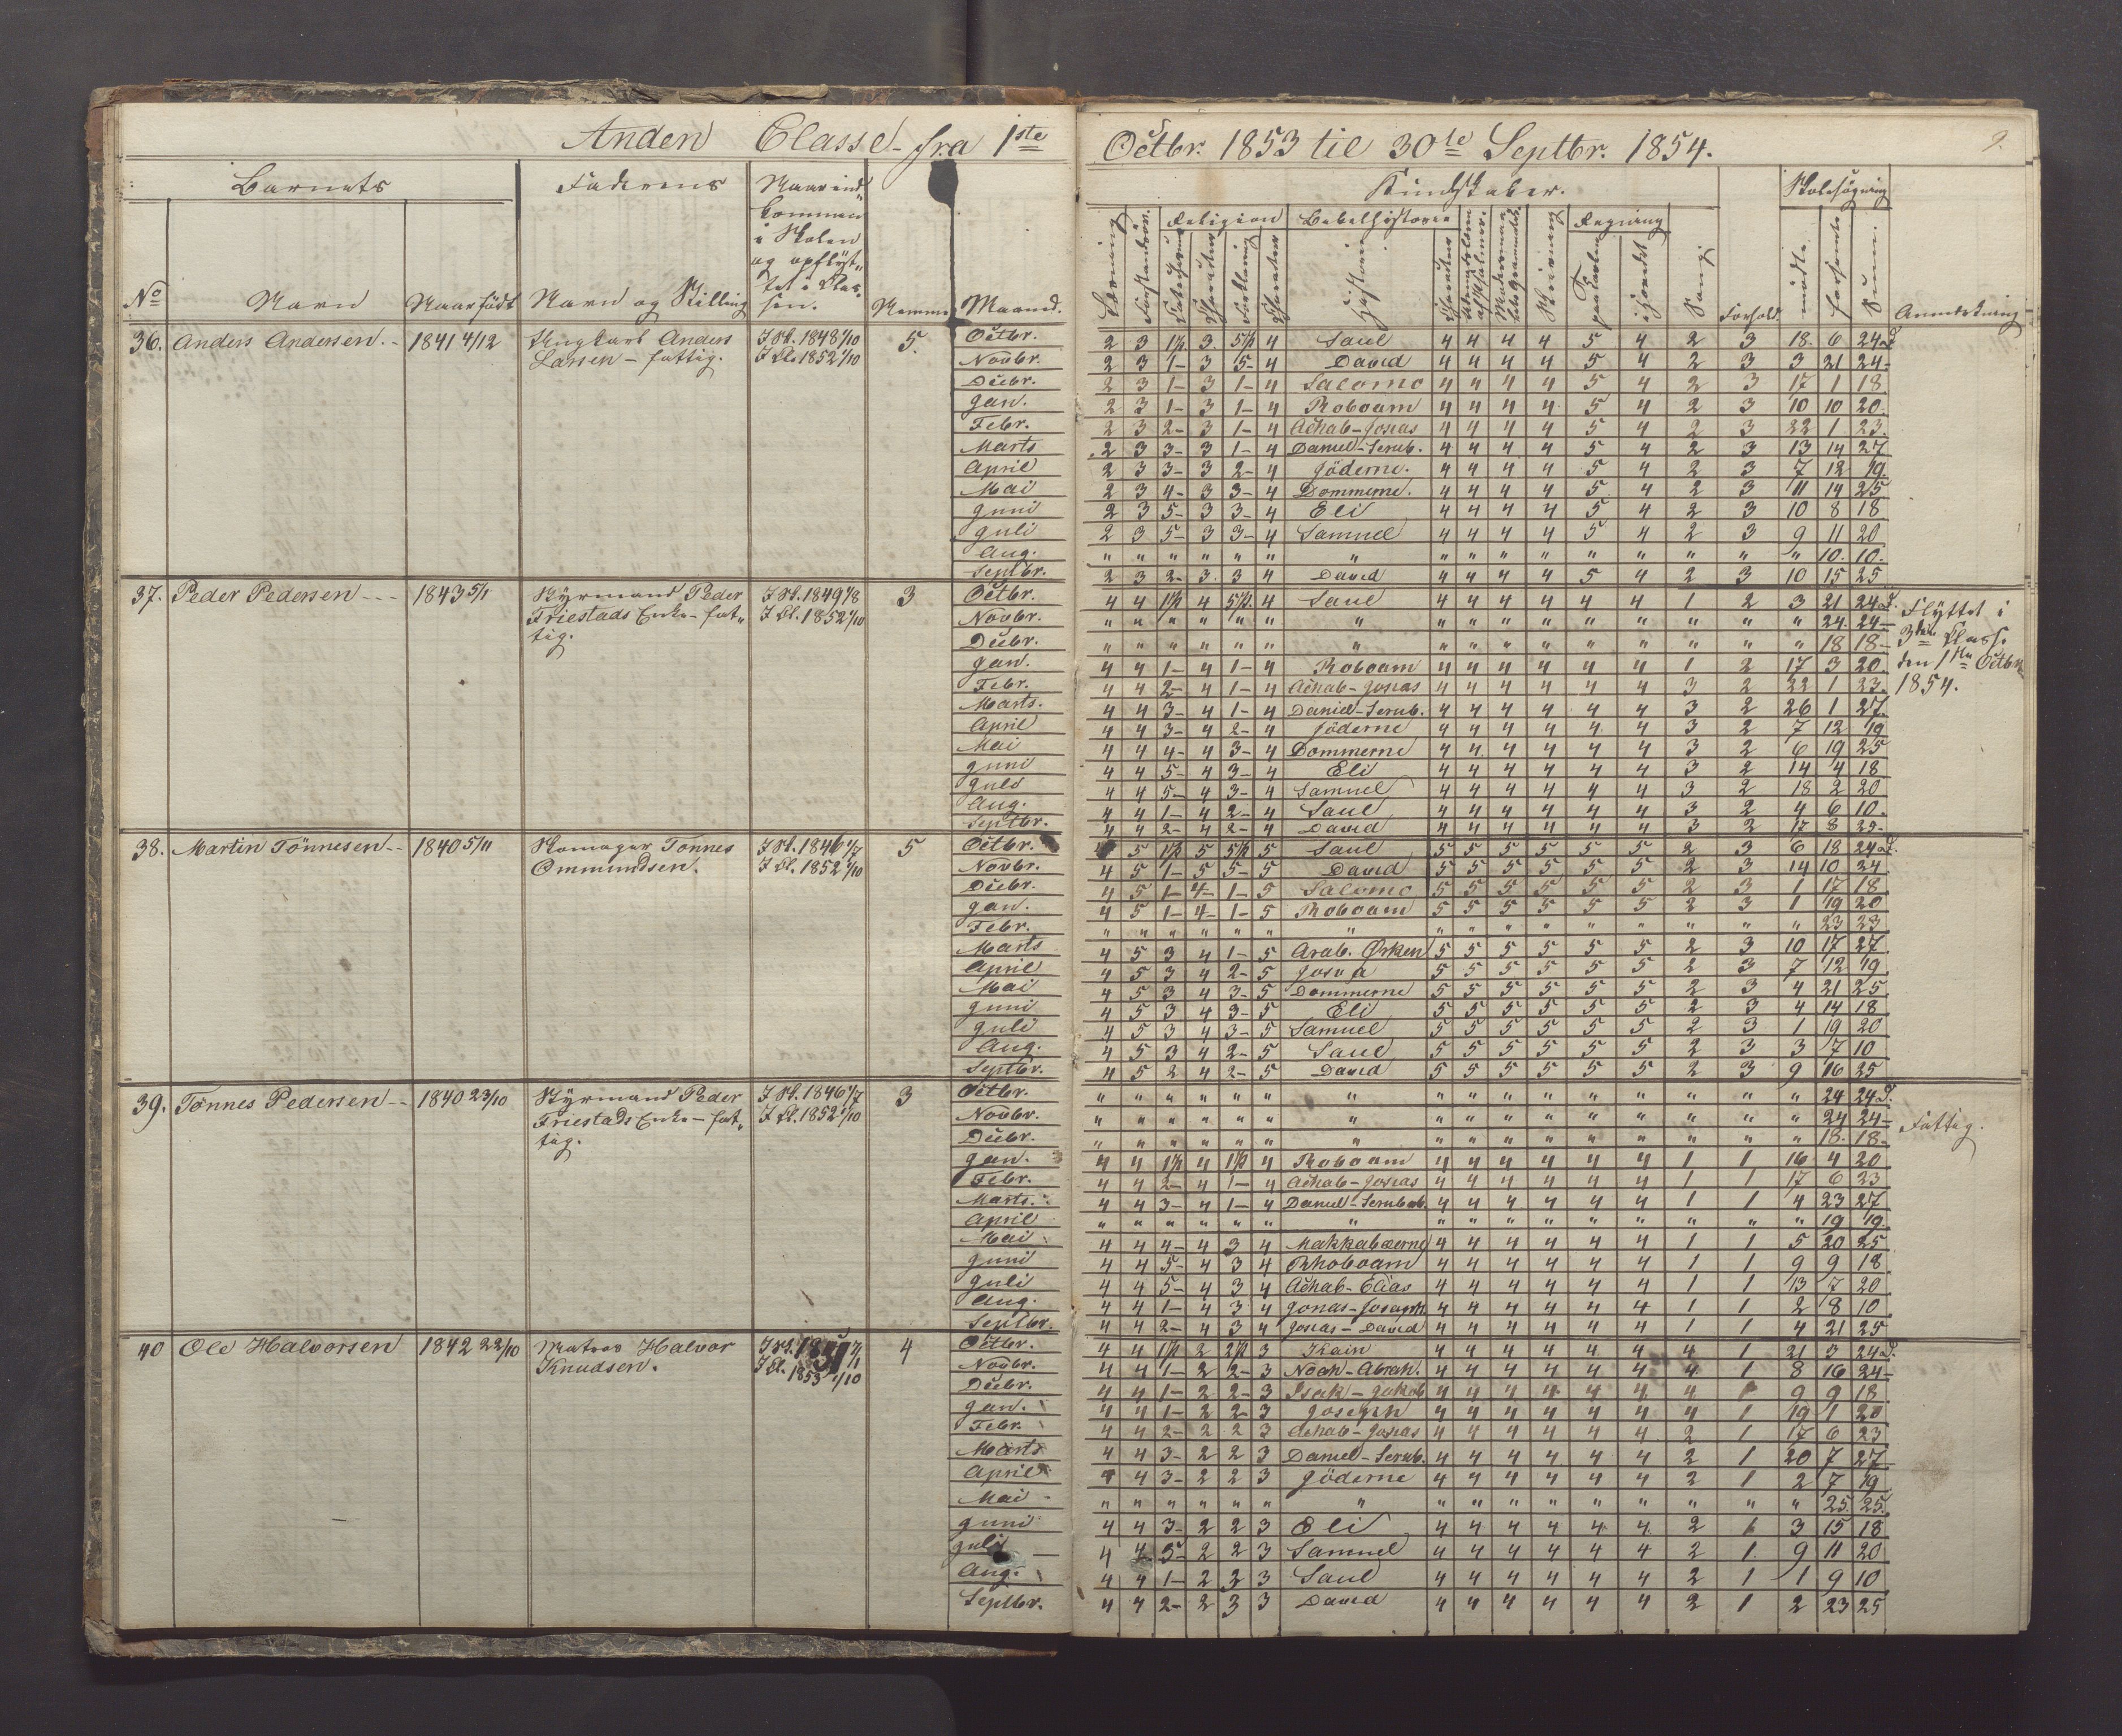 Anden Classe fra 1ste Octbr. 1853 til 30te Septbr. 1854.
9.
Barnets Faderens Naar ind-
kommen
i Skolen
og opflyt-
tet i Clas-
sen.
No Navn Naar født Navn og Stilling Nemme Maaned.
Kundskaber. Skolesøgning
Religion Bibelhistorie Regning
Læsning Historie Sang Forhold mødte forsømte Sum Anmærkning
36. Anders Andersen. 1841 4/12 Ungkarl Anders I Sk. 1848 1/10 5.
Larsen - fattig. I Cl. 1852 1/10
Octbr. 2 3 1ste P 3 5te P 4 Saul 4 4 4 4 5 4 2 3 18 6 24 D
Novbr. 2 3 1- 3 5- 4 David 4 4 4 4 5 4 2 3 3 21 24-
Decbr. 2 3 1- 3 1- 4 Salomo 4 4 4 4 5 4 2 3 17 1 18
Jan. 2 3 1- 3 1- 4 Roboam 4 4 4 4 5 4 2 3 10 10 20
Febr. 2 3 2- 3 1- 4 Achab-Josias 4 4 4 4 5 4 2 3 22 1 23
Marts 2 3 3- 3 1- 4 Daniel-Serub. 4 4 4 4 5 4 2 3 13 14 27
April 2 3 3- 3 2- 4 Jöderne. 4 4 4 4 5 4 2 3 7 12 19
Mai 2 3 4- 3 3- 4 Dommerne. 4 4 4 4 5 4 2 3 11 14 25
Juni 2 3 5- 3 3- 4 Eli 4 4 4 4 5 4 2 3 10 8 18
Juli 2 3 5- 3 3- 4 Samuel 4 4 4 4 5 4 2 3 9 11 20
Aug. " " " " " " " " " " " " " " " " 10. 10.
Septbr. 2 3 2- 3 3 4 David 4 4 4 4 5 4 2 3 10 15 25
37. Peder Pedersen 1843 5/1 Styrmand Peder I Sk. 1849 1/8 3
Friestads Enke - fat- I Cl. 1852 1/10
tig.
Octbr. 4 4 1ste P 4 5te P. 4 Saul 4 4 4 4 4 4 1 2 3 21 24 D. Flyttet i
Novbr. " " " " " " " " " " " " " " " " 24. 24- 3die Classe
Decbr. " " " " " " " " " " " " " " " " 18 18- den 1ste Octbr
Jan. 4 4 1- 4 1- 4 Roboam 4 4 4 4 4 4 1 2 17 3 20 1854.
Febr. 4 4 2- 4 1- 4 Achab-Josias 4 4 4 4 4 4 3 2 22 1 23
Marts. 4 4 3- 4 1- 4 Daniel-Serub. 4 4 4 4 4 4 3 2 26 1 27
April 4 4 3- 4 2- 4 Jöderne 4 4 4 4 4 4 3 2 7 12 19
Mai 4 4 4- 4 3- 4 Dommerne 4 4 4 4 4 4 3 2 6 19 25
Juni 4 4 5- 4 3- 4 Eli 4 4 4 4 4 4 3 2 14 4 18
Juli 4 4 5- 4 3- 4 Samuel 4 4 4 4 4 4 3 2 18 2 20
Aug. 4 4 1- 4 2- 4 Saul 4 4 4 4 4 4 3 2 4 6 10
Septbr. 4 4 2- 4 2- 4 David 4 4 4 4 4 4 3 2 17 8 25-
38. Martin Tönnesen 1840 5/11 Skomager Tonnes I Sk. 1846 1/7 5
Ommundsen. I Cl. 1852 1/10
Octbr. 5 1ste P 5 5te P 5 Saul 5 5 5 5 5 5 2 3 6 18 24 D.
Novbr. 4 5 1- 5 5- 5 David 5 5 5 5 5 5 2 3 14 10 24
Decbr. 4 5 1- 4- 1- 5 Salomo 5 5 5 5 5 5 2 3 1 17 18
Jan. 4 5 1- 4- 1- 5 Roboam 5 5 5 5 5 5 2 3 1 19 20
Febr. " " " " " " " " " " " " " " " " 23 23
Marts 4 5 3 4 1- 5 Arab. Ørken 5 5 5 5 5 5 2 3 10 17 27
April 4 5 3 4 2- 5 Josva 5 5 5 5 5 5 2 3 7 12 19
Mai 4 5 3 4 3- 5 Dommerne 5 5 5 5 5 5 2 3 4 21 25
Juni 4 5 3 4 3- 5 Eli 5 5 5 5 5 5 2 3 4 14 18
Juli 4 5 3 4 3- 5 Samuel 5 5 5 5 5 5 2 3 1 19 20
Aug. 4 5 3 4 2- 5 Saul 5 5 5 5 5 5 2 3 3 7 10
Septbr. 4 5 2 4 2- 5 David 5 5 5 5 5 5 2 3 9 16 25
39. Tönnes Pedersen 1840 23/10 Styrmand Peder I Sk. 1846 1/7 3
Friestads Enke - fat- I Cl. 1852 1/10
tig.
Octbr. " " " " " " " " " " " " " " " " 24 24 D.
Novbr. " " " " " " " " " " " " " " " " 24 24- Fattig.
Decbr. " " " " " " " " " " " " " " " " 18. 18-
Jan. 4 4 1ste P 4 1ste P 4 Roboam 4 4 4 4 4 4 1 1 16 4 20
Febr. 4 4 2- 4 1- 4 Achab-Josias 4 4 4 4 4 4 1 1 17 6 23
Marts. 4 4 3- 4 1- 4 Daniel-Serubab. 4 4 4 4 4 4 1 1 4 23 27
April " " " " " " " " " " " " " " " " 19 19
Mai 4 4 4- 4 3 4 Makkabæerne 4 4 4 4 4 4 1 1 5 20 25
Juni 4 4 5- 4 3 4 Rhoboam 4 4 4 4 4 4 1 1 9 9 18
Juli 4 4 5- 4 3 4 Achab-Elias 4 4 4 4 4 4 1 1 13 7 20
Aug. 4 4 1- 4 3 4 4 4 4 4 4 4 1 1 2 8 10
Septbr. 4 4 2- 4 3 4 Josias-David 4 4 4 4 4 4 1 1 4 21 25
40 Ole Halvorsen 1842 22/10 Matros Halvor I Sk. 1851 4
Knudsen. I Cl. 1853 1/10
Octbr. 4 4 1ste P 2 2 P 3 Kain 4 4 4 4 4 4 4 1 21 3 24 D.
Novbr. 4 4 1- 2 2- 3 Noah-Abrah. 4 4 4 4 4 4 4 1 8 16 24-
Decbr. 4 4 1- 2 2- 3 Isak-Jakob 4 4 4 4 4 4 4 1 9 9 18
Jan. 4 4 1- 2 2- 3 Joseph 4 4 4 4 4 4 4 1 19 1 20
Febr. 4 4 2- 2 2 3 Achab-Josias 4 4 4 4 4 4 2 1 17 6 23
Marts 4 4 3- 2 2 3 Daniel-Serub. 4 4 4 4 4 4 2 1 20 7 27
April 4 4 3- 2 2 3 Jöderne 4 4 4 4 4 4 2 1 2 7 19
Mai " " " " " " " " " " " " " " " " 25. 25.
Juni 4 4 3- 2 2 3 Eli 4 4 4 4 4 4 2 1 3 15 18
Juli 4 4 5- 2 2 3 Samuel 4 4 4 4 4 4 2 1 9 11 20
Aug. 4 4 1- 2 2 3 Saul 4 4 4 4 4 4 2 1 1 9 10
Septbr. 4 4 2- 2 3 3 David 4 4 4 4 4 4 2 1 2 23 25